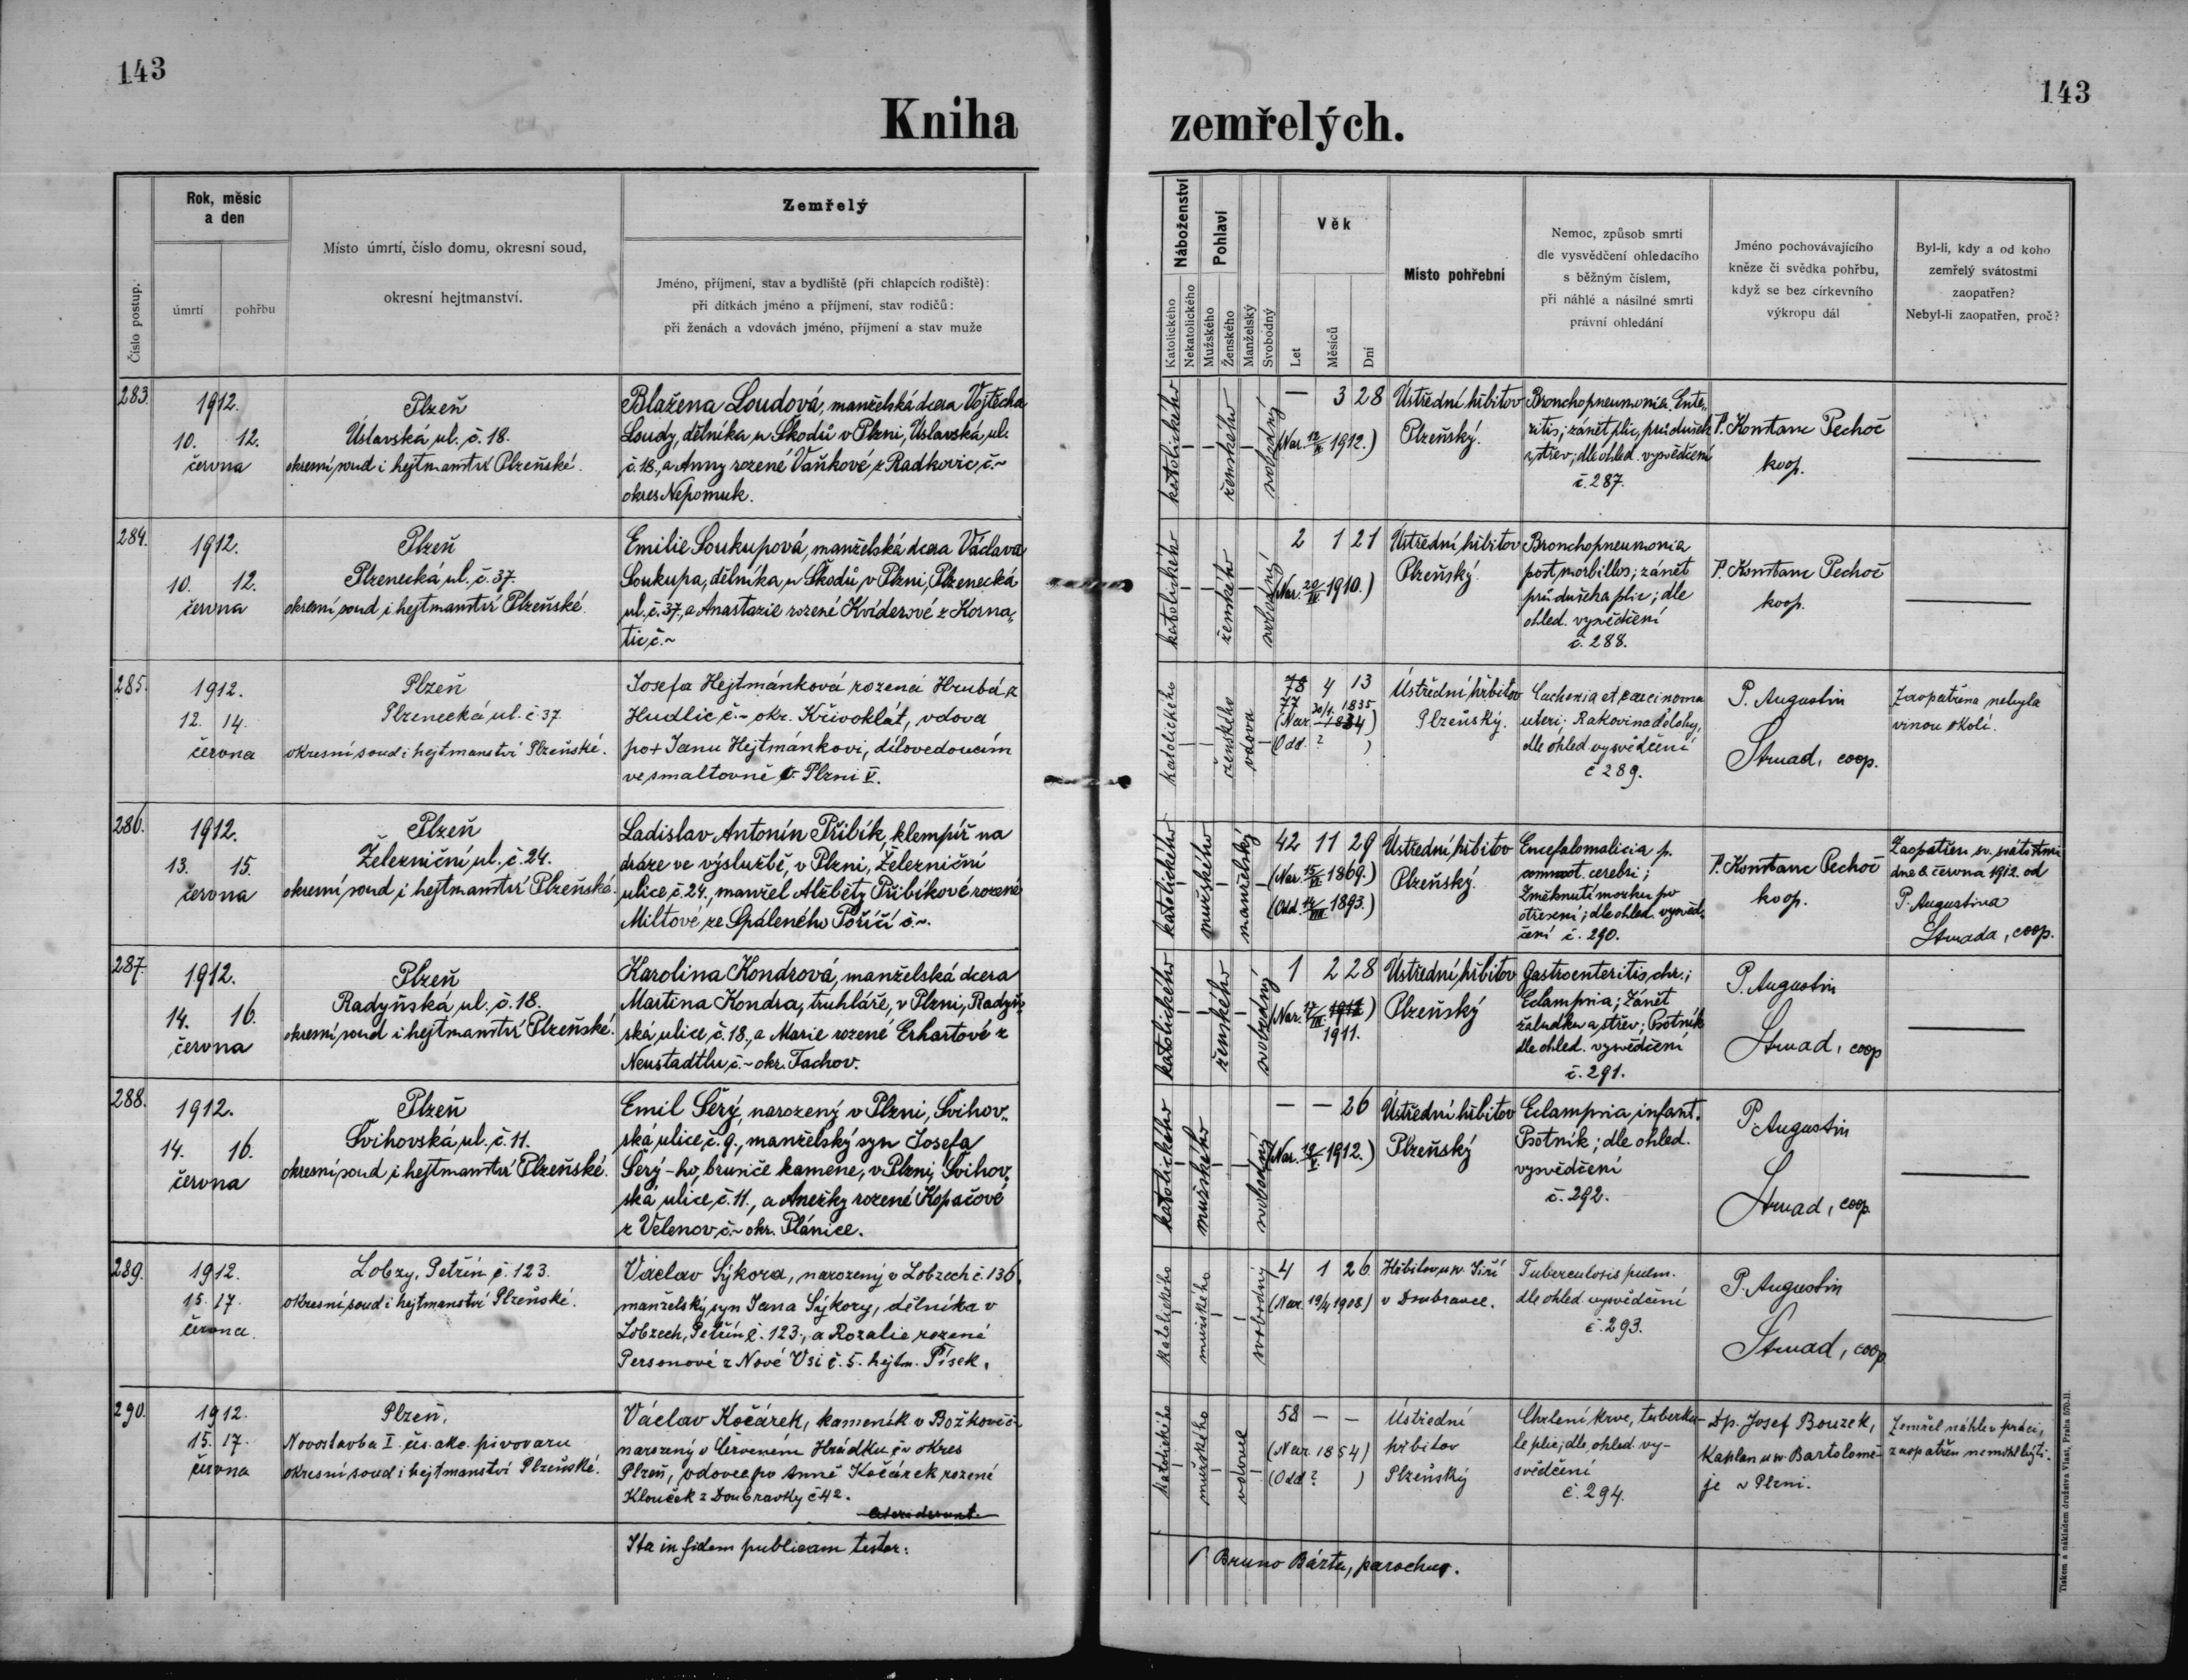 143
Kniha
Rok, měsíc
a den
Zemřelý
Číslo postup.
úmrtí
pohřbu
Místo úmrtí, číslo domu, okresní soud,
okresní hejtmanství.
Jméno, příjmení, stav a bydliště (při chlapcích rodiště):
při dítkách jméno a příjmení, stav rodičů:
při ženách a vdovách jméno, příjmení a stav muže
283.
1912.
10. 12.
června
Plzeň
Úslavská ul. č. 18.
okresní soud i hejtmanství Plzeňské.
Blažena Loudová, manželská dcera Vojtěcha
Loudy, dělníka u Škodů v Plzni, Úslavská ul.
č. 18., a Anny rozené Vaňkové z Radkovic, č.~
okres Nepomuk.
284.
1912.
10. 12.
června
Plzeň
Plzenecká ul. č. 37.
okresní soud i hejtmanství Plzeňské.
Emilie Soukupová, manželská dcera Václava
Soukupa, dělníka u Škodů v Plzni, Plzenecká
ul. č. 37, a Anastazie rozené Kviderové z Korna„
tic č.~
285.
1912.
12. 14.
června
Plzeň
Plzenecká ul. č 37
okresní soud i hejtmanství Plzeňské.
Josefa Hejtmánková rozená Hrubá z
Hudlic č.~ okr. Křivoklát, vdova
po + Janu Hejtmánkovi, dílovedoucím
ve smaltovně v Plzni V.
286.
1912.
13. 15.
června
Plzeň
Železniční ul. č. 24.
okresní soud i hejtmanství Plzeňská.
Ladislav Antonín Přibík, klempíř na
dráze ve výslužbě, v Plzni, Železniční
ulice č. 24., manžel Alžběty Přibíkové rozené
Miltové, ze Spáleného Poříčí č.~.
287.
1912.
14. 16.
června
Plzeň
Radyňská ul. č. 18.
okresní soud i hejtmanství Plzeňské.
Karolina Kondrová, manželská dcera
Martina Kondra, truhláře, v Plzni, Radyň„
ská ulice, č. 18., a Marie rozené Erhartové z
Neustadtlu, č.~ okr. Tachov.
288.
1912.
14. 16.
června
Plzeň
Švihovská ul. č. 11.
okresní soud i hejtmanství Plzeňské.
Emil Šerý, narozený v Plzni, Švihov„
ská ulice, č. 9., manželský syn Josefa
Šerý-ho, brusiče kamene, v Plzni, Švihov„
ská ulice, č. 11., a Anežky rozené Kopačové
z Velenov, č.~ okr. Plánice.
289.
1912.
15. 17.
června.
Lobzy, Petřín č. 123.
okresní soud i hejtmanství Plzeňské.
Václav Sýkora, narozený v Lobzech č. 136,
manželský syn Jana Sýkory, dělníka v
Lobzech, Petřín č. 123., a Rozalie rozené
Personové z Nové Vsi č. 5. hejtm. Písek.
290.
1912.
15. 17.
června
Plzeň,
Novostavba I. čes. akc. pivovaru
okresní soud i hejtmanství Plzeňské.
Václav Kočárek, kameník v Božkově č~
narozený v Červeném Hrádku č~ okres
Plzeň, vdovec po Anně Kočárek rozené
Klouček z Doubravky č 42.
Ita in fidem publicam testor:
143
zemřelých.
Náboženství
Pohlaví
Věk
Katolického
Nekatolického
Mužského
Ženského
Manželský
Svobodný
Let
Měsíců
Dní
Místo pohřební
Nemoc, způsob smrti
dle vysvědčení ohledacího
s běžným číslem,
při náhlé a násilné smrti
právní ohledání
Jméno pochovávajícího
kněze či svědka pohřbu,
když se bez církevního
výkropu dál
Byl-li, kdy a od koho
zemřelý svátostmi
zaopatřen?
Nebyl-li zaopatřen, proč?
katolického
ženského
svobodný
— 3 28
(Nar. 12/II 1912.)
Ústřední hřbitov
Plzeňský.
Bronchopneumonia. Ente„
ritis; zánět plic, průdušek
a střev; dle ohled. vysvědčení
č. 287.
P. Konstanc Pechoč
koop.
katolického
ženského
svobodný
2 1 21
(Nar. 20/IV 1910.)
Ústřední hřbitov
Plzeňský.
Bronchopneumonia
post morbillos; zánět
průdušek a plic; dle
ohled. vysvědčení
č. 288.
P. Konstanc Pechoč
koop.
katolického
ženského
vdova
78 4 13
77
(Nar. 30/1. 1835
1834)
(Odd. ? )
Ústřední hřbitov
Plzeňský.
Cachexia et carcinoma
uteri; Rakovina dělohy,
dle ohled vysvědčení
č 289.
P. Augustin
Strnad, coop.
Zaopatřena nebyla
vinou okolí.
katolického
mužského
manželský
42 11 29
(Nar. 15/VI 1869.)
(Odd. 14/VIII 1893.)
Ústřední hřbitov
Plzeňský.
Encefalomalicia p.
commot. cerebri;
Změknutí mozku po
otřesení; dle ohled. vysvěd„
čení č. 290.
P. Konstanc Pechoč
koop.
Zaopatřen sv. svátostmi
dne 8. června 1912. od
P. Augustina
Strnada, coop.
katolického
ženského
svobodný
1 2 28
(Nar. 17/III 1912)
1911.
Ústřední hřbitov
Plzeňský
Gastroenteritis, chr.;
Eclampsia; Zánět
žaludku a střev; Psotník
dle ohled. vysvědčení
č. 291.
P. Augustin
Strnad, coop
katolického
mužského
svobodný
— — 26
(Nar. 19/V. 1912.)
Ústřední hřbitov
Plzeňský
Eclampsia, infant.
Psotník; dle ohled.
vysvědčení
č. 292.
P. Augustin
Strnad, coop.
katolického
mužského
svobodný
4 1 26
(Nar. 19/4 1908)
Hřbitov u sv. Jiří
v Doubravce.
Tuberculosis pulm.
dle ohled vysvědčení
č. 293.
P. Augustin
Strnad, coop.
katolického
mužského
vdovec
58 — —
(Nar. 1854)
(Odd ? )
Ústřední
hřbitov
Plzeňský
Chrlení krve, tuberku-
le plic; dle ohled. vy-
svědčení
č. 294.
Dp. Josef Bouzek,
kaplan u sv. Bartolomě-
je v Plzni.
Zemřel náhle v práci,
zaopatřen nemohl býti.
Bruno Bárta, parochus.
Tiskem a nákladem družstva Vlast, Praha 570-II.